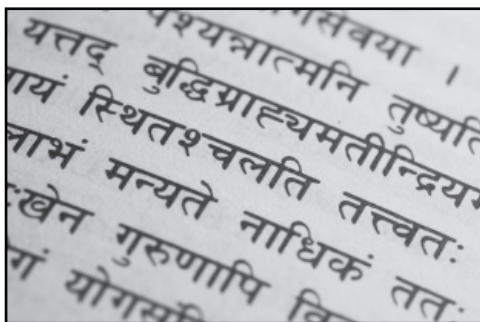 गसेवया ।
पश्यन्नात्मनि तुष्यति
यत्तद् बुद्धिग्राह्यमतीन्द्रियम
ायं स्थितश्चलति तत्त्वतः
लाभं मन्यते नाधिकं ततः
ःखेन गुरुणापि वि
गं योगसं